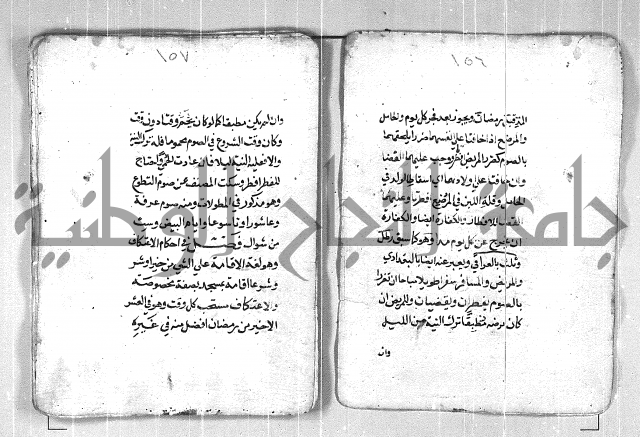 ١٥٦
المترقبة برمضان ويجوز بعد فجر كل يوم والحامل
والمرضع اذا خافتا على انفسهما ضررا يلحقهما
بالصوم كضرر المريض افطرتا ووجب عليهما القضا
وان خافتا على ولادهما اي اسقاط الولد في
الحامل وقلة اللبن في المرضع افطرتا وعليهما
القضا للافطار والكفارة ايضا والكفارة
ان يخرج عن كل يوم مد وهو كما سبق رطل
وثلث بالعراقي ويعبر عنه ايضا بالبغدادي
والمريض والمسافر سفرا طويلا مباحا ان تضررا
بالصوم يفطران ويقضيان والمريض ان
كان مرضه مطبقا ترك النية من الليل
وان
١٥٧
وان لم يكن مطبقا كما لو كان يحم وقتا دون وقت
وكان وقت الشروع في الصوم محموما فله ترك النية
والا فعليه النية ليلا فان عادت الحمى واحتاج
للفطر افطر وسكت المصنف عن صوم التطوع
وهو مذكور في المطولات ومنه صوم عرفة
وعاشورا وتاسوعا وايام البيض وست
من شوال فصل في احكام الاعتكاف
وهو لغة الاقامة على الشي من خير او شر
وشرعا اقامة بمسجد بصفة مخصوصة
والاعتكاف مستحب كل وقت وهو في العشر
الاخير من رمضان افضل منه في غيره
جامعة النجاح الوطنية